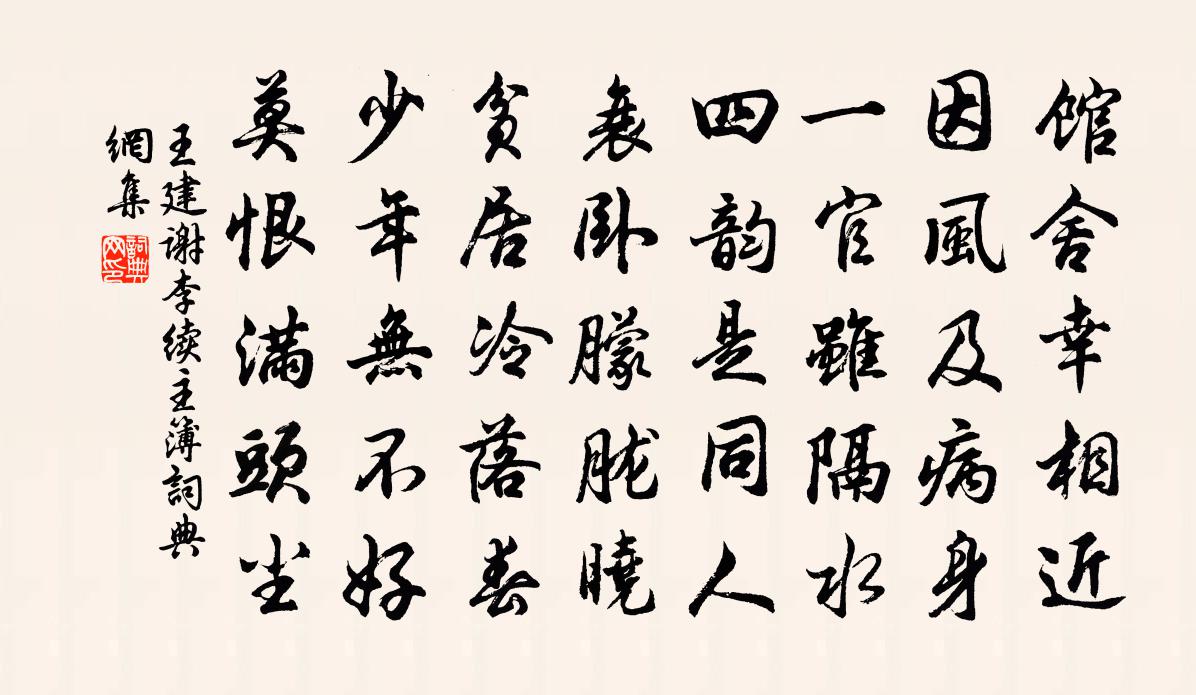 馆舍幸相近
因風及病身
一官雖隔水
四韵是同人
衰卧朦胧曉
貧居冷落春
少年無不好
莫恨滿頭尘
王建謝李续主簿詞典
網集
詞典
网印